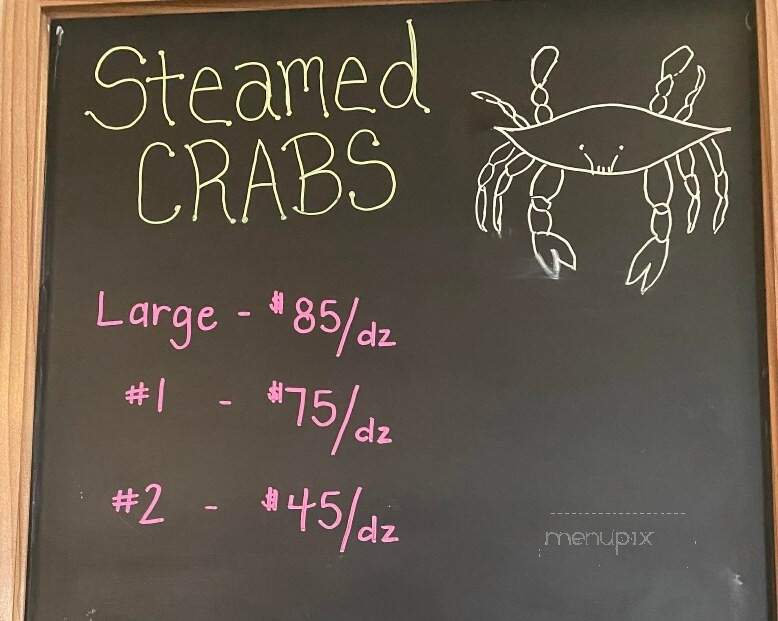 Steamed
CRABS
Large - $85/dz
#1 - $75/dz
#2 - $45/dz
menupix